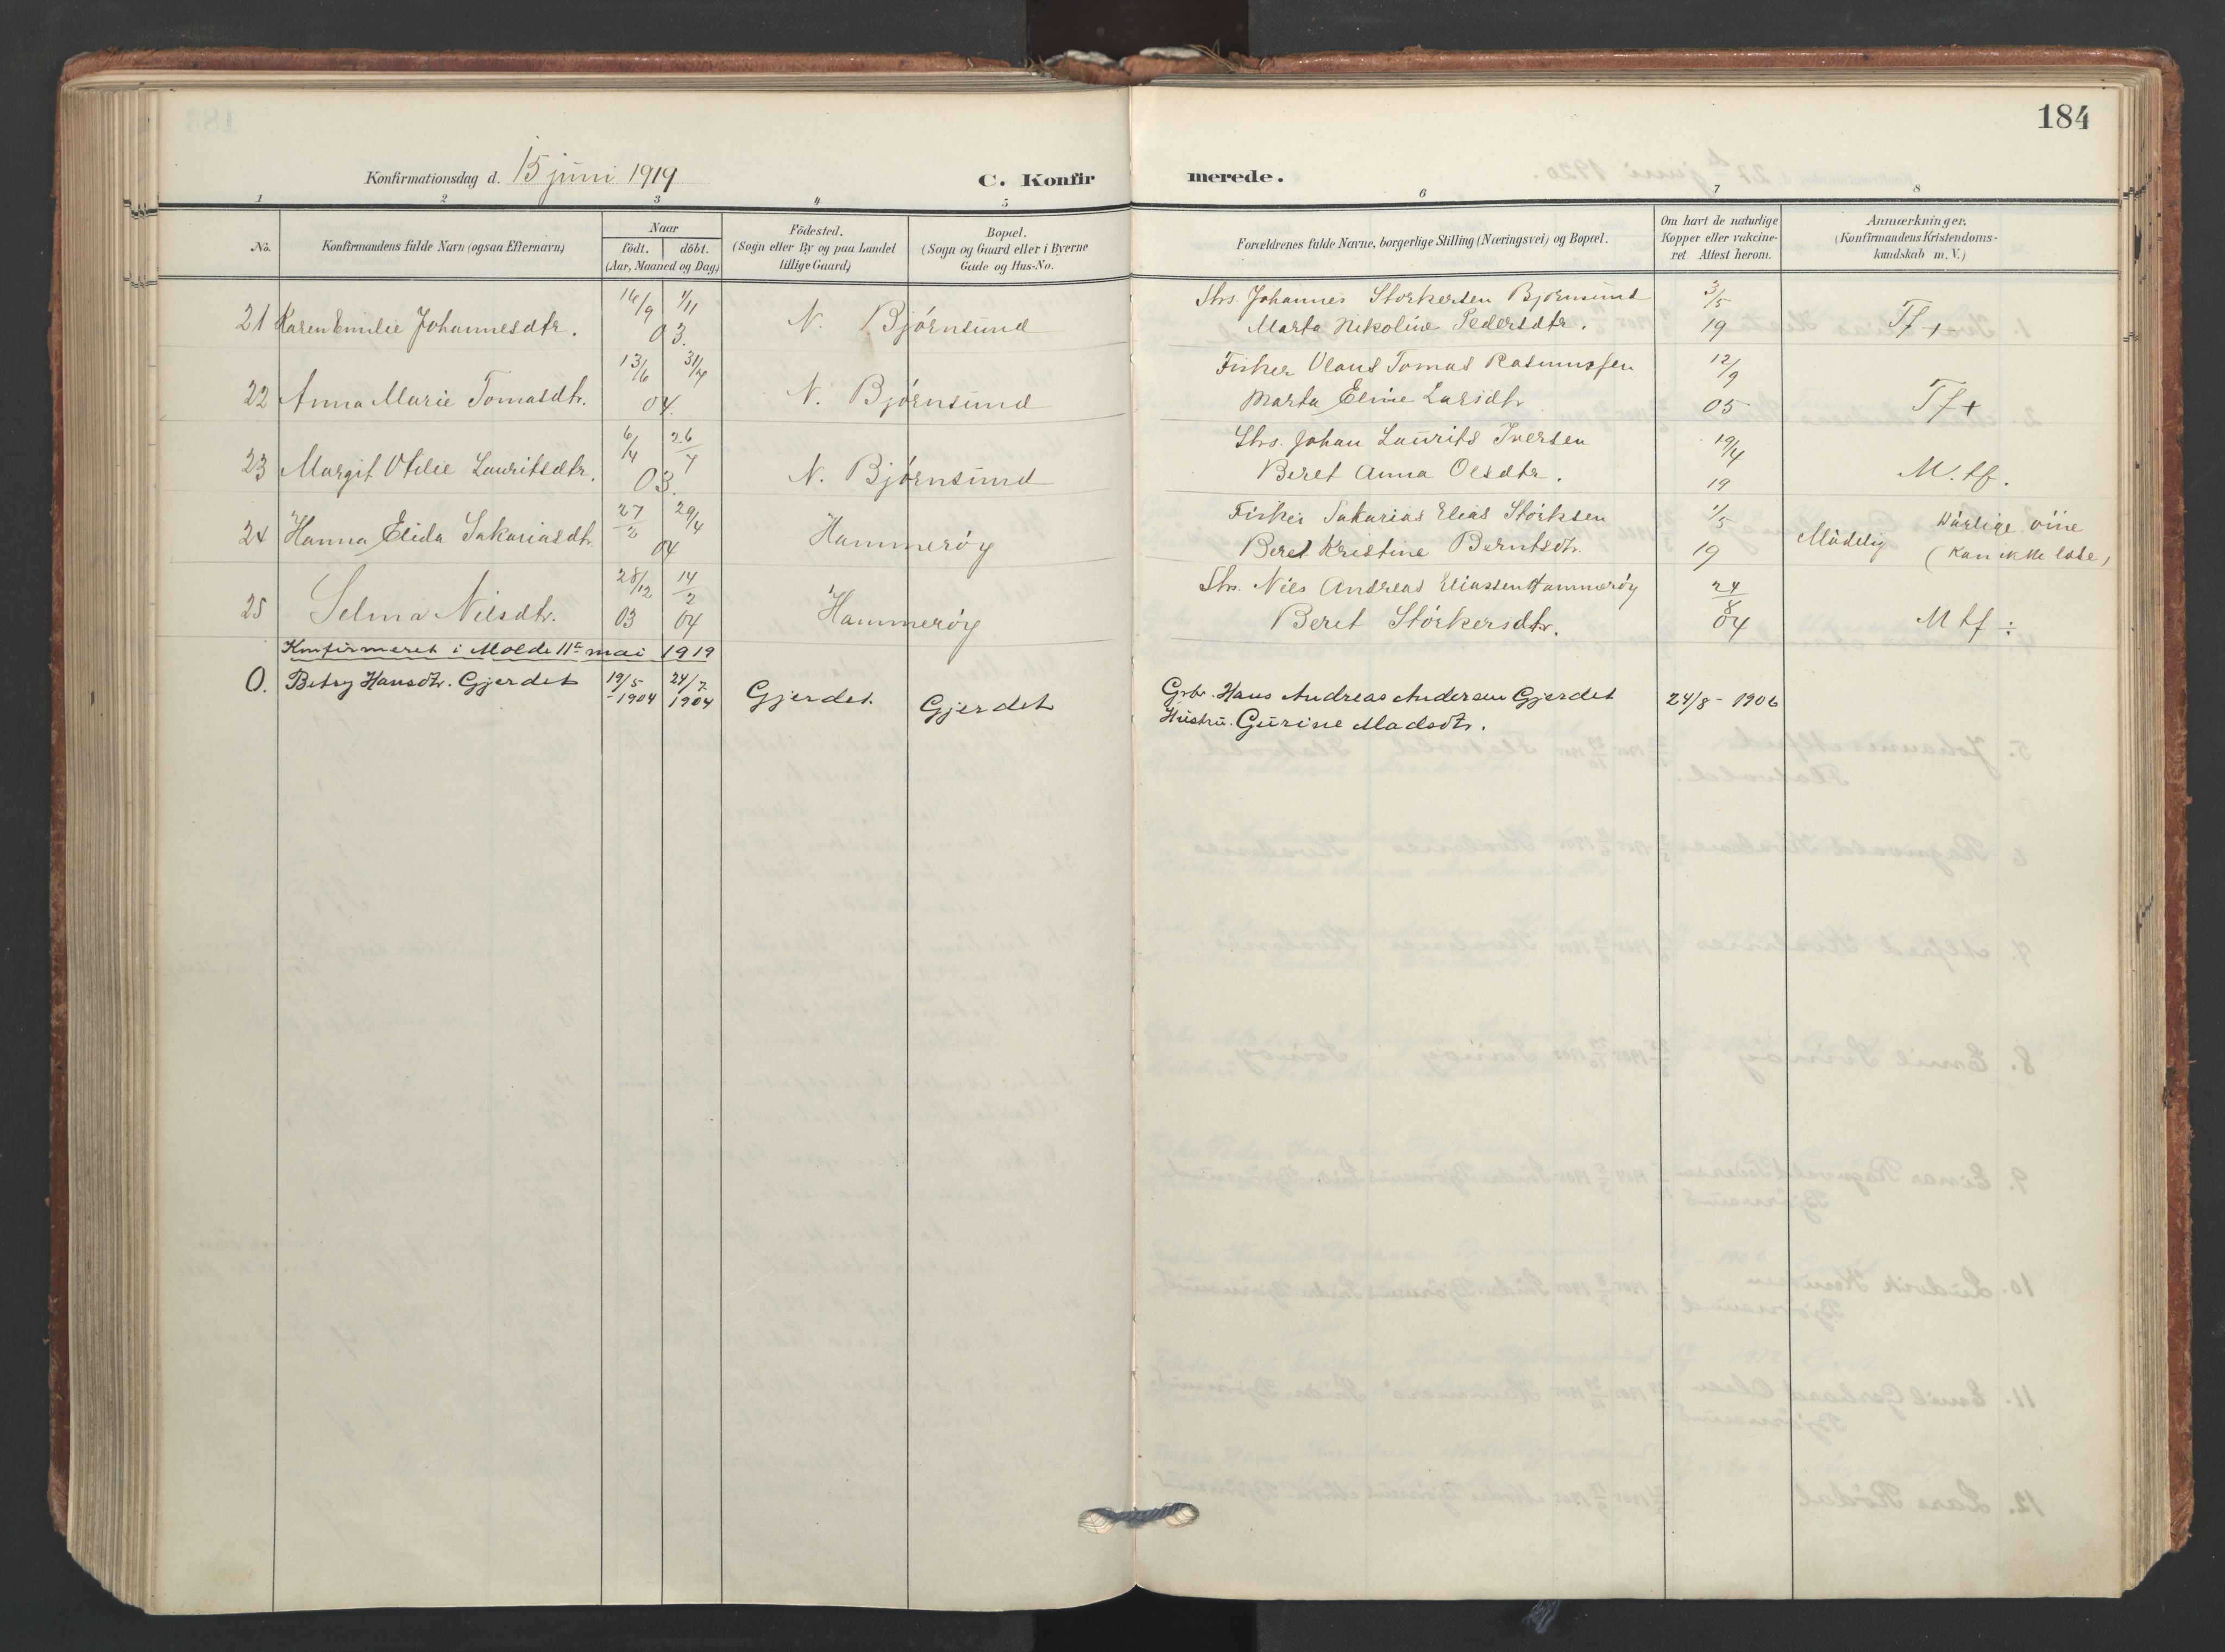 184
Konfirmationsdag d. 15 juni 1919
C. Konfirmerede.
1 2 3 4 5 6 7 8
No.
Konfirmandens fulde Navn (ogsaa Efternavn)
Naar
födt. döbt.
(Aar, Maaned og Dag)
Födested.
(Sogn eller By og paa Landet
tillige Gaard)
Bopæl.
(Sogn og Gaard eller i Byerne
Gade og Hus-No.
Forældrenes fulde Navne, borgerlige Stilling (Næringsvei) og Bopæl.
Om havt de naturlige
Kopper eller vakcine-
ret Attest herom.
Anmærkninger.
(Konfirmandens Kristendoms-
kundskab m. V.)
21 Karen Emilie Johannesdtr. 14/9 1/11 03. N. Bjørnsund
Johannes Storkersen Bjørnsund
Marta Nikoline Pedersdtr. 3/5 19 Tf +
22 Anna Marie Tomasdtr. 13/6 31/7 04. N. Bjørnsund
Fisker Olaus Tomas Rasmussen
Marta Eline Larsdtr 12/9 05 Tf +
23 Margit Otilie Lauritsdtr. 6/4 26/7 03. N. Bjørnsund
Johan Laurits Iversen
Beret Anna Olsdtr. 19/4 19 M. tf.
24 Hanna Elida Sakariasdtr 27/2 29/4 04 Hammerøy
Fisker Sakarias Elias Størksen
Beret Kristine Berntsdtr. 1/5 19 Mådelig Dårlige öine
(kan ikke læse)
25 Selma Nilsdtr. 28/12 03 14/2 04 Hammerøy
Nils Andreas Eliassen Hammerøy
Beret Størkersdtr. 24/8 04 M tf ÷
Konfirmeret i Molde 11te mai 1919
0. Betsy Hansdtr. Gjerdet 19/5 - 1904 24/7 1904 Gjerdet. Gjerdet
Gbr. Hans Andreas Andersen Gjerdet 24/8 - 1906
Hustru. Gurine Madsdtr.